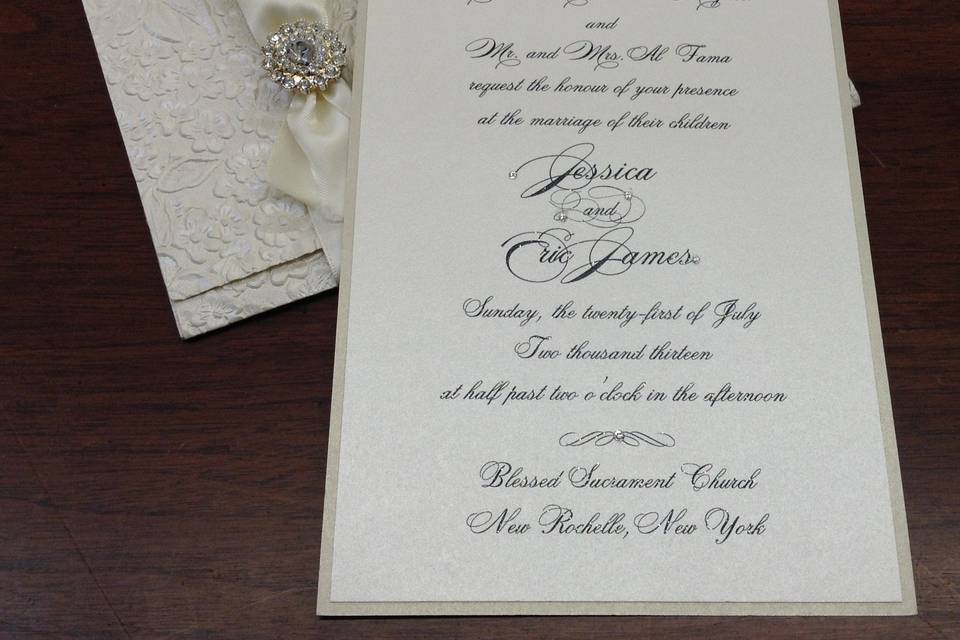 and
Mr. and Mrs. Al Fama
request the honour of your presence
at the marriage of their children
Jessica
and
Eric James
Sunday, the twenty-first of July
Two thousand thirteen
at half past two o'clock in the afternoon
Blessed Sacrament Church
New Rochelle, New York